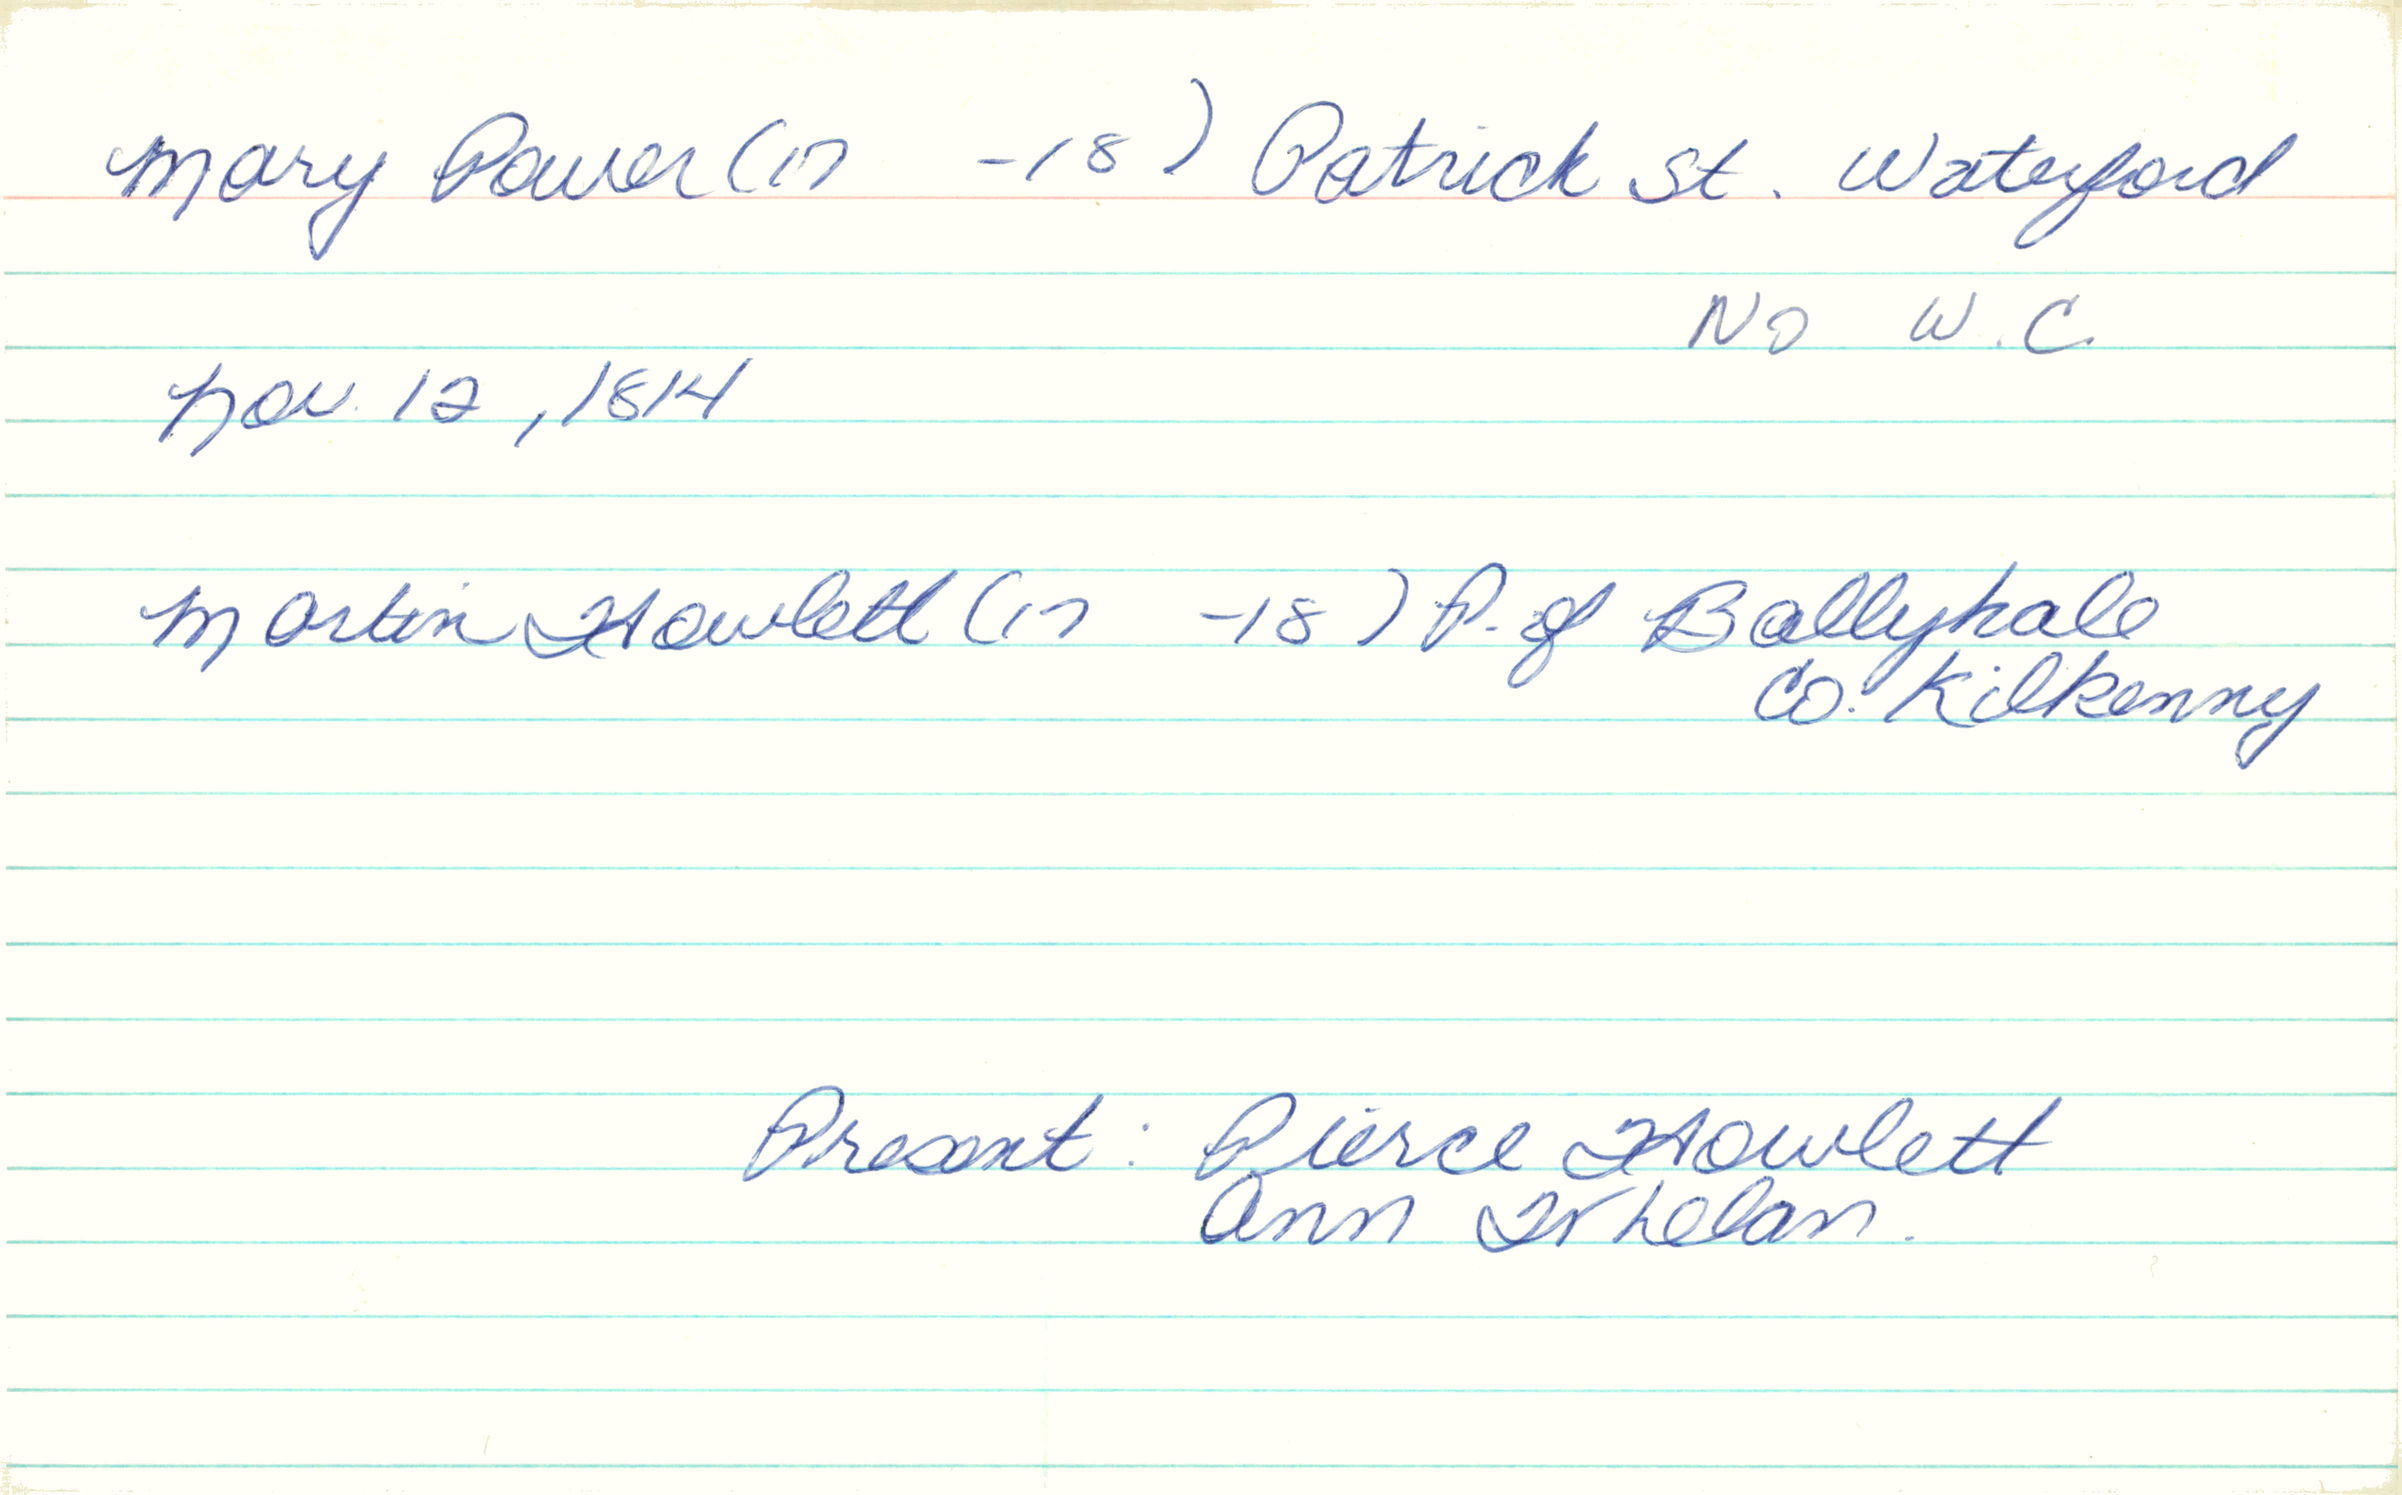 Mary Power (17 -18 ) Patrick St. Waterford
No W.C.
Nov. 12, 1814
Martin Howlett (17 -18 ) P. of Ballyhale
Co. Kilkenny
Present: Pierce Howlett
Ann Whelan.